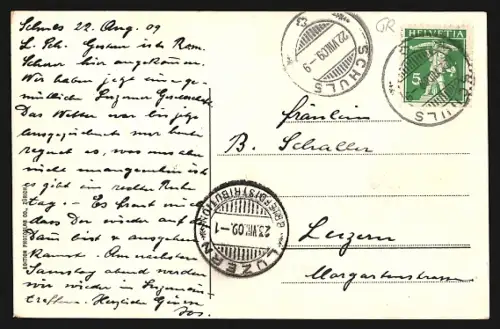 Schuls 22. Aug. 09
L. Sch. Gestern ist Rom.
Schaar hier angekommen.
Wir haben jetzt eine ge-
mütliche Luzerner Gesellschaft.
Das Wetter war bis jetzt
ausgezeichnet nur heute
regnet es, was uns aber
nicht unangenehm ist
es gibt ein rechter Ruhe
tag. - Es freut mich
dass Du wieder auf dem
Damm bist & ausgehen
kannst. Am nächsten
Samstag abend werden
wir wieder in Luzern ein-
treffen. Herzliche Grüsse
Jos.
EDITION PHOTOGLOB CO., ZÜRICH
SCHULS
22.VIII.09-9
GR
HELVETIA
5
SCHULS
Fräulein
B. Schaller
LUZERN
BRIEFDISTRIBUTION
23.VIII.09.-1
Luzern
Morgartenstrasse